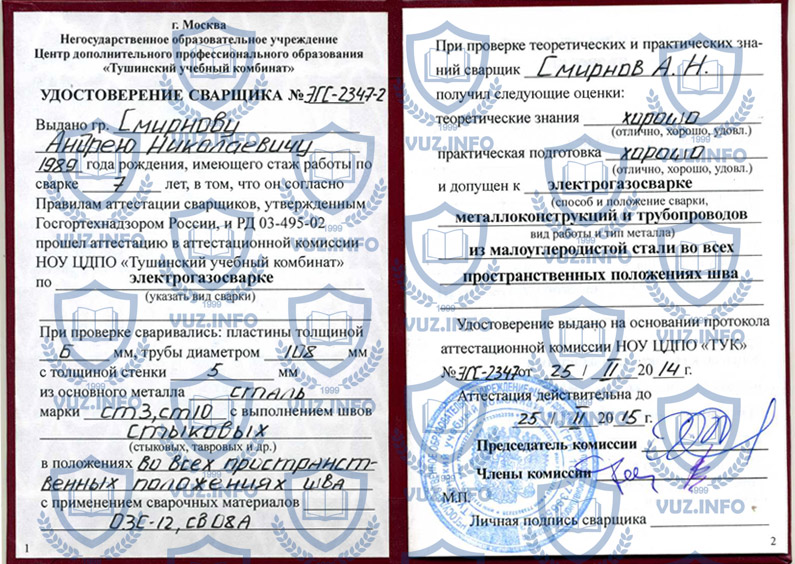 г. Москва
Негосударственное образовательное учреждение
Центр дополнительного профессионального образования
«Тушинский учебный комбинат»
УДОСТОВЕРЕНИЕ СВАРЩИКА № ЭГС-2347-2
Выдано гр. Смирнову
Андрею Николаевичу
1989 года рождения, имеющего стаж работы по
сварке 7 лет, в том, что он согласно
Правилам аттестации сварщиков, утвержденным
Госгортехнадзором России, и РД 03-495-02
прошел аттестацию в аттестационной комиссии
НОУ ЦДПО «Тушинский учебный комбинат»
по электрогазосварке
(указать вид сварки)
При проверке сваривались: пластины толщиной
6 мм, трубы диаметром 108 мм
с толщиной стенки 5 мм
из основного металла сталь
марки ст3, ст10 с выполнением швов
стыковых
(стыковых, тавровых и др.)
в положениях во всех пространст-
венных положениях шва
с применением сварочных материалов
ОЗС-12, СВ08А
1
При проверке теоретических и практических зна-
ний сварщик Смирнов А. Н.
получил следующие оценки:
теоретические знания хорошо
(отлично, хорошо, удовл.)
практическая подготовка хорошо
(отлично, хорошо, удовл.)
и допущен к электрогазосварке
(способ и положение сварки,
металлоконструкций и трубопроводов
вид работы и тип металла)
из малоуглеродистой стали во всех
пространственных положениях шва
Удостоверение выдано на основании протокола
аттестационной комиссии НОУ ЦДПО «ТУК»
№ ЭГС-2347 от 25 / II 2014 г.
Аттестация действительна до
25 / II 2015 г.
Председатель комиссии
Члены комиссии
М.П.
Личная подпись сварщика
2
1999
VUZ.INFO